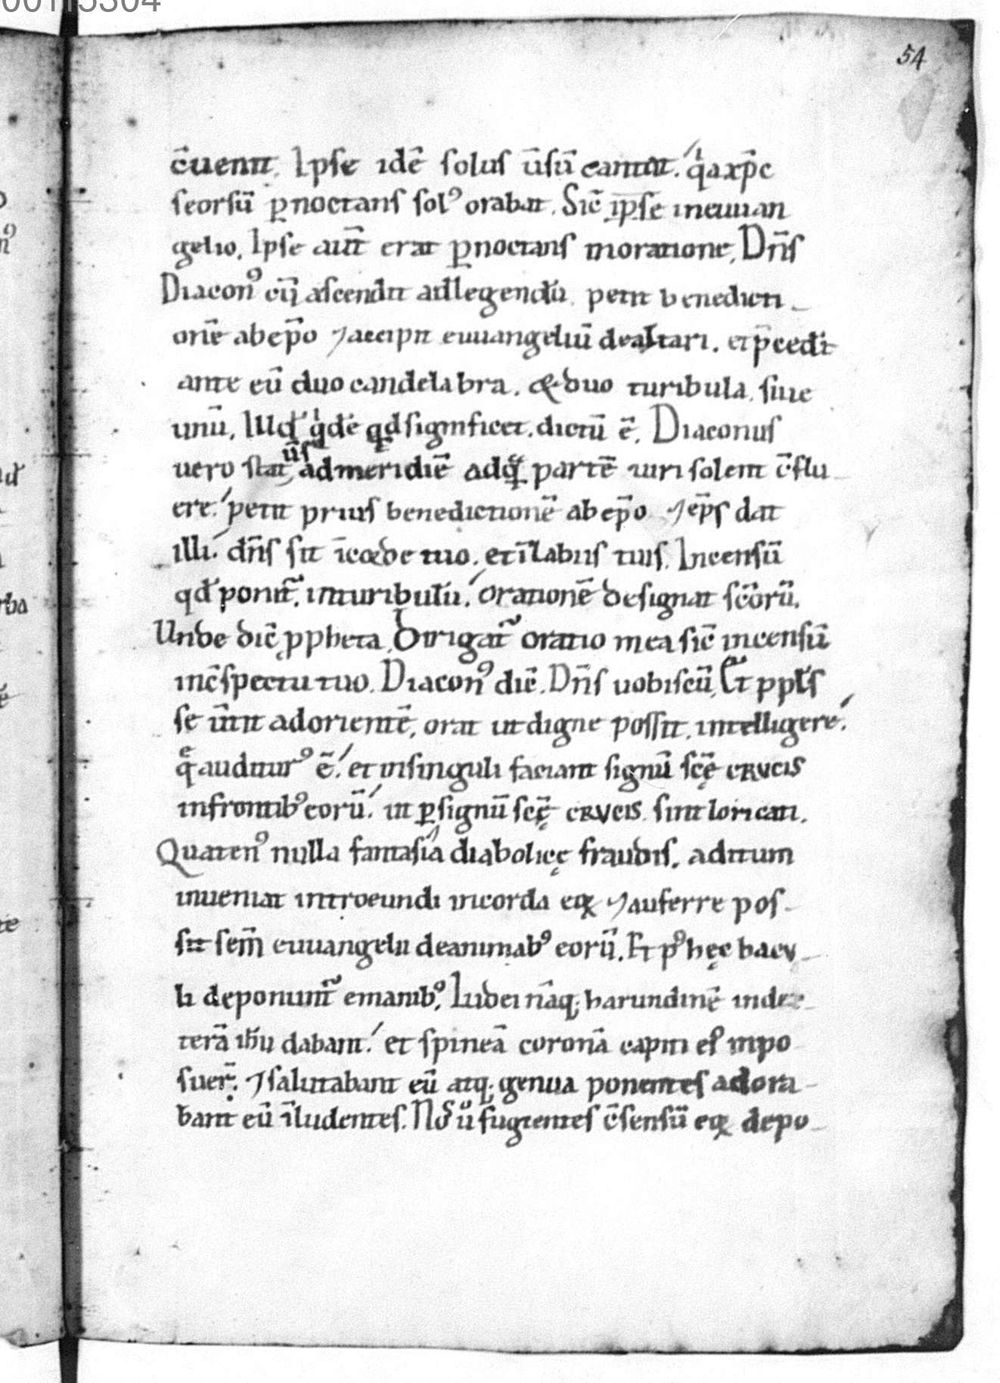 54
c̄uenit. Ipse idē solus ūsū cantat. q̇a xp̄c
seorsū ꝑnoctans solꝰ orabat. Sic̄ ip̄se ineuuan
gelio. Ipse aut̄ erat ꝑnoctans inoratione. Dn̄s
Diaconꝰ cū ascendit adlegendū. petit benedicti
onē abep̄o ⁊accipit euuangeliū dealtari. et p̄cedit
ante eū duo candelabra. & duo turibula. siue
unū. Illud qͥdē qd significet. dictū ē. Diaconus
uero stat ūs admeridiē adquā partē uiri solent c̄flu
ere. petit prius benedictionē abep̄o ⁊ ep̄s dat
illi. dn̄s sit īcorde tuo. et īlabiis tuis. Incensū
qd ponit̄. inturibulū. orationē designat sc̄orū.
Unde dic̄ ꝓpheta. Dirigat̄ oratio mea sic̄ incensū
inc̄spectu tuo. Diaconꝰ dic̄. Dn̄s uobiscū. Et ppl̄s
se ūtit adorientē. orat ut digne possit. intelligere.
q̄ auditurꝰ ē. et insinguli faciant signū sc̄ę crucis
infrontibꝰ eorū. ut ꝑsignū sc̄ę crucis. sint loricati.
Quatenꝰ nulla fantasia diabolicę fraudis. aditum
inueniat introeundi incorda eoꝝ ⁊auferre pos
sit sem̄ euuangelii deanimabꝰ eorū. Et pꝰ hęc bacu
li deponunt̄ emanibꝰ. Iudei nāq; harundinē index
terā ih̄u dabant. et spineā coronā capiti eiꝰ inpo
suer̄. ⁊salutabant eū atq; genua ponentes adora
bant eū īludentes. Nos ū fugientes c̄sensū eoꝝ depo